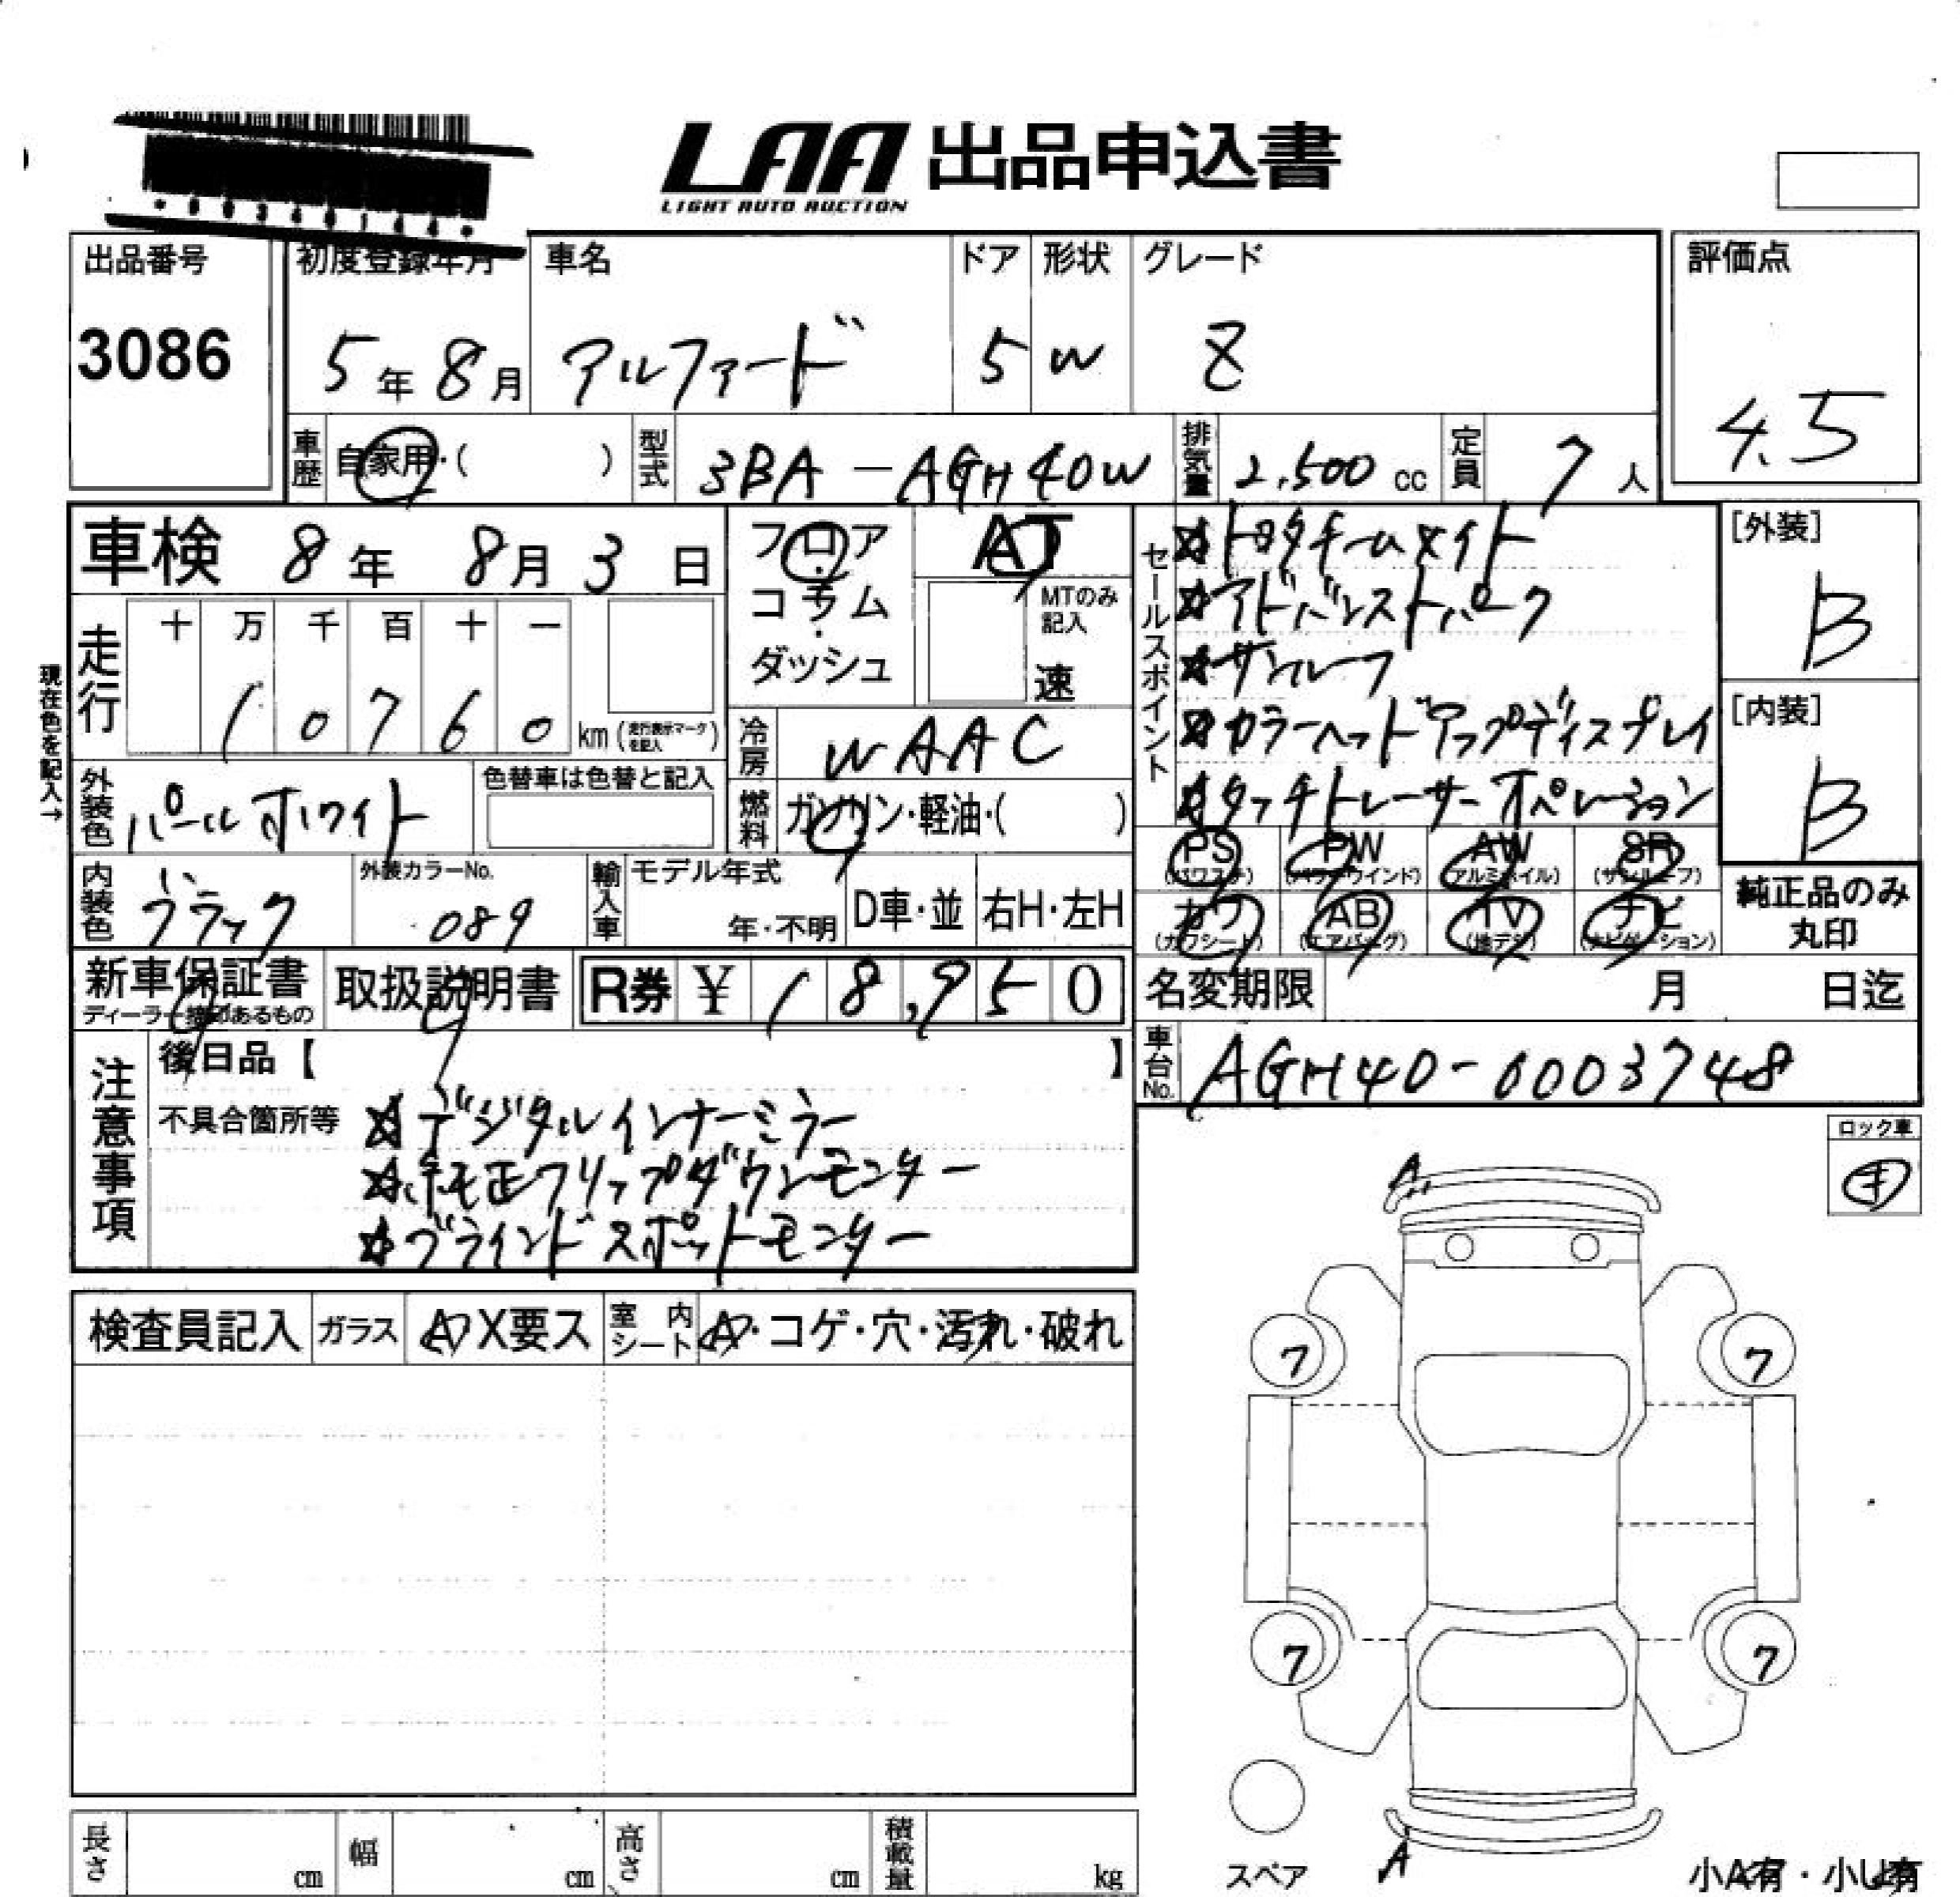 LAA 出品申込書
LIGHT AUTO AUCTION
出品番号
3086
初度登録年月
5年8月
車名
アルファード
ドア
5
形状
W
グレード
Z
評価点
4.5
車歴 自家用・( )
型式 3BA-AGH40W
排気量 2,500 cc
定員 7 人
車検 8年 8月 3日
フロア・コラム・ダッシュ
AT
MTのみ記入
速
現在色を記入→
走行
十 万 千 百 十 一
1 0 7 6 0 km (走行表示マークを記入)
冷房 WAAC
燃料 ガソリン・軽油・( )
外装色 パールホワイト
色替車は色替と記入
内装色 ブラック
外装カラーNo.
089
輸入車
モデル年式
年・不明
D車・並
右H・左H
セールスポイント
☆トヨタチームメイト
☆アドバンストパーク
☆サンルーフ
☆カラーヘッドアップディスプレイ
☆タッチトレーサーオペレーション
[外装]
B
[内装]
B
PS (パワステ)
PW (パワーウインド)
AW (アルミホイル)
SR (サンルーフ)
カワ (カワシート)
AB (エアバッグ)
TV (地デジ)
ナビ (ナビゲーション)
純正品のみ
丸印
新車保証書
ディーラー捺印あるもの
取扱説明書
R券 ¥ 18,950
名変期限 月 日迄
車台No. AGH40-0003748
注意事項
後日品【 】
不具合箇所等 ☆デジタルインナーミラー
☆純正フリップダウンモニター
☆ブラインドスポットモニター
ロック車
キ
検査員記入
ガラス
A X要ス
室内シート
A・コゲ・穴・汚れ・破れ
A
7
7
7
7
A
スペア
小A有・小U有
長さ cm
幅 cm
高さ cm
積載量 kg